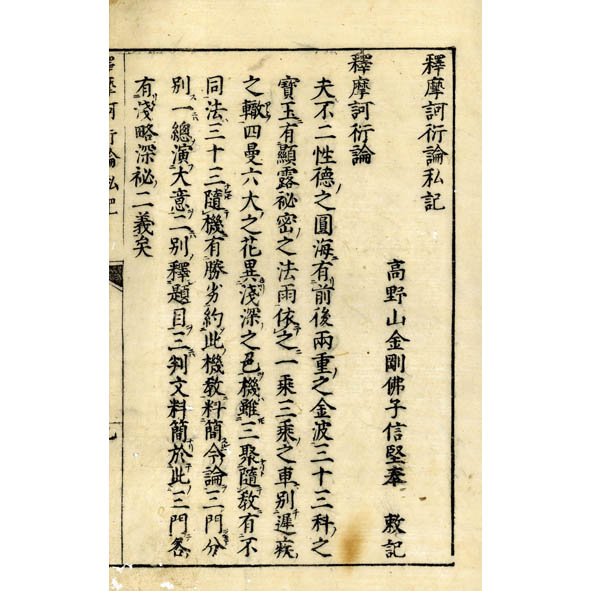 釋摩訶衍論私記
高野山金剛佛子信堅奉　敕記
釋摩訶衍論
夫不二性德之圓海有前後兩重之金波三十三科之
寶玉有顯露祕密之法雨依之一乘三乘之車別遲疾
之轍四曼六大之花異淺深之色機雖三聚隨教有不
同法三十三隨機有勝劣約此機教料簡今論三門分
別一總演大意二別釋題目三判文料簡於此三門各
有淺略深祕二義矣
釋摩訶衍論私記